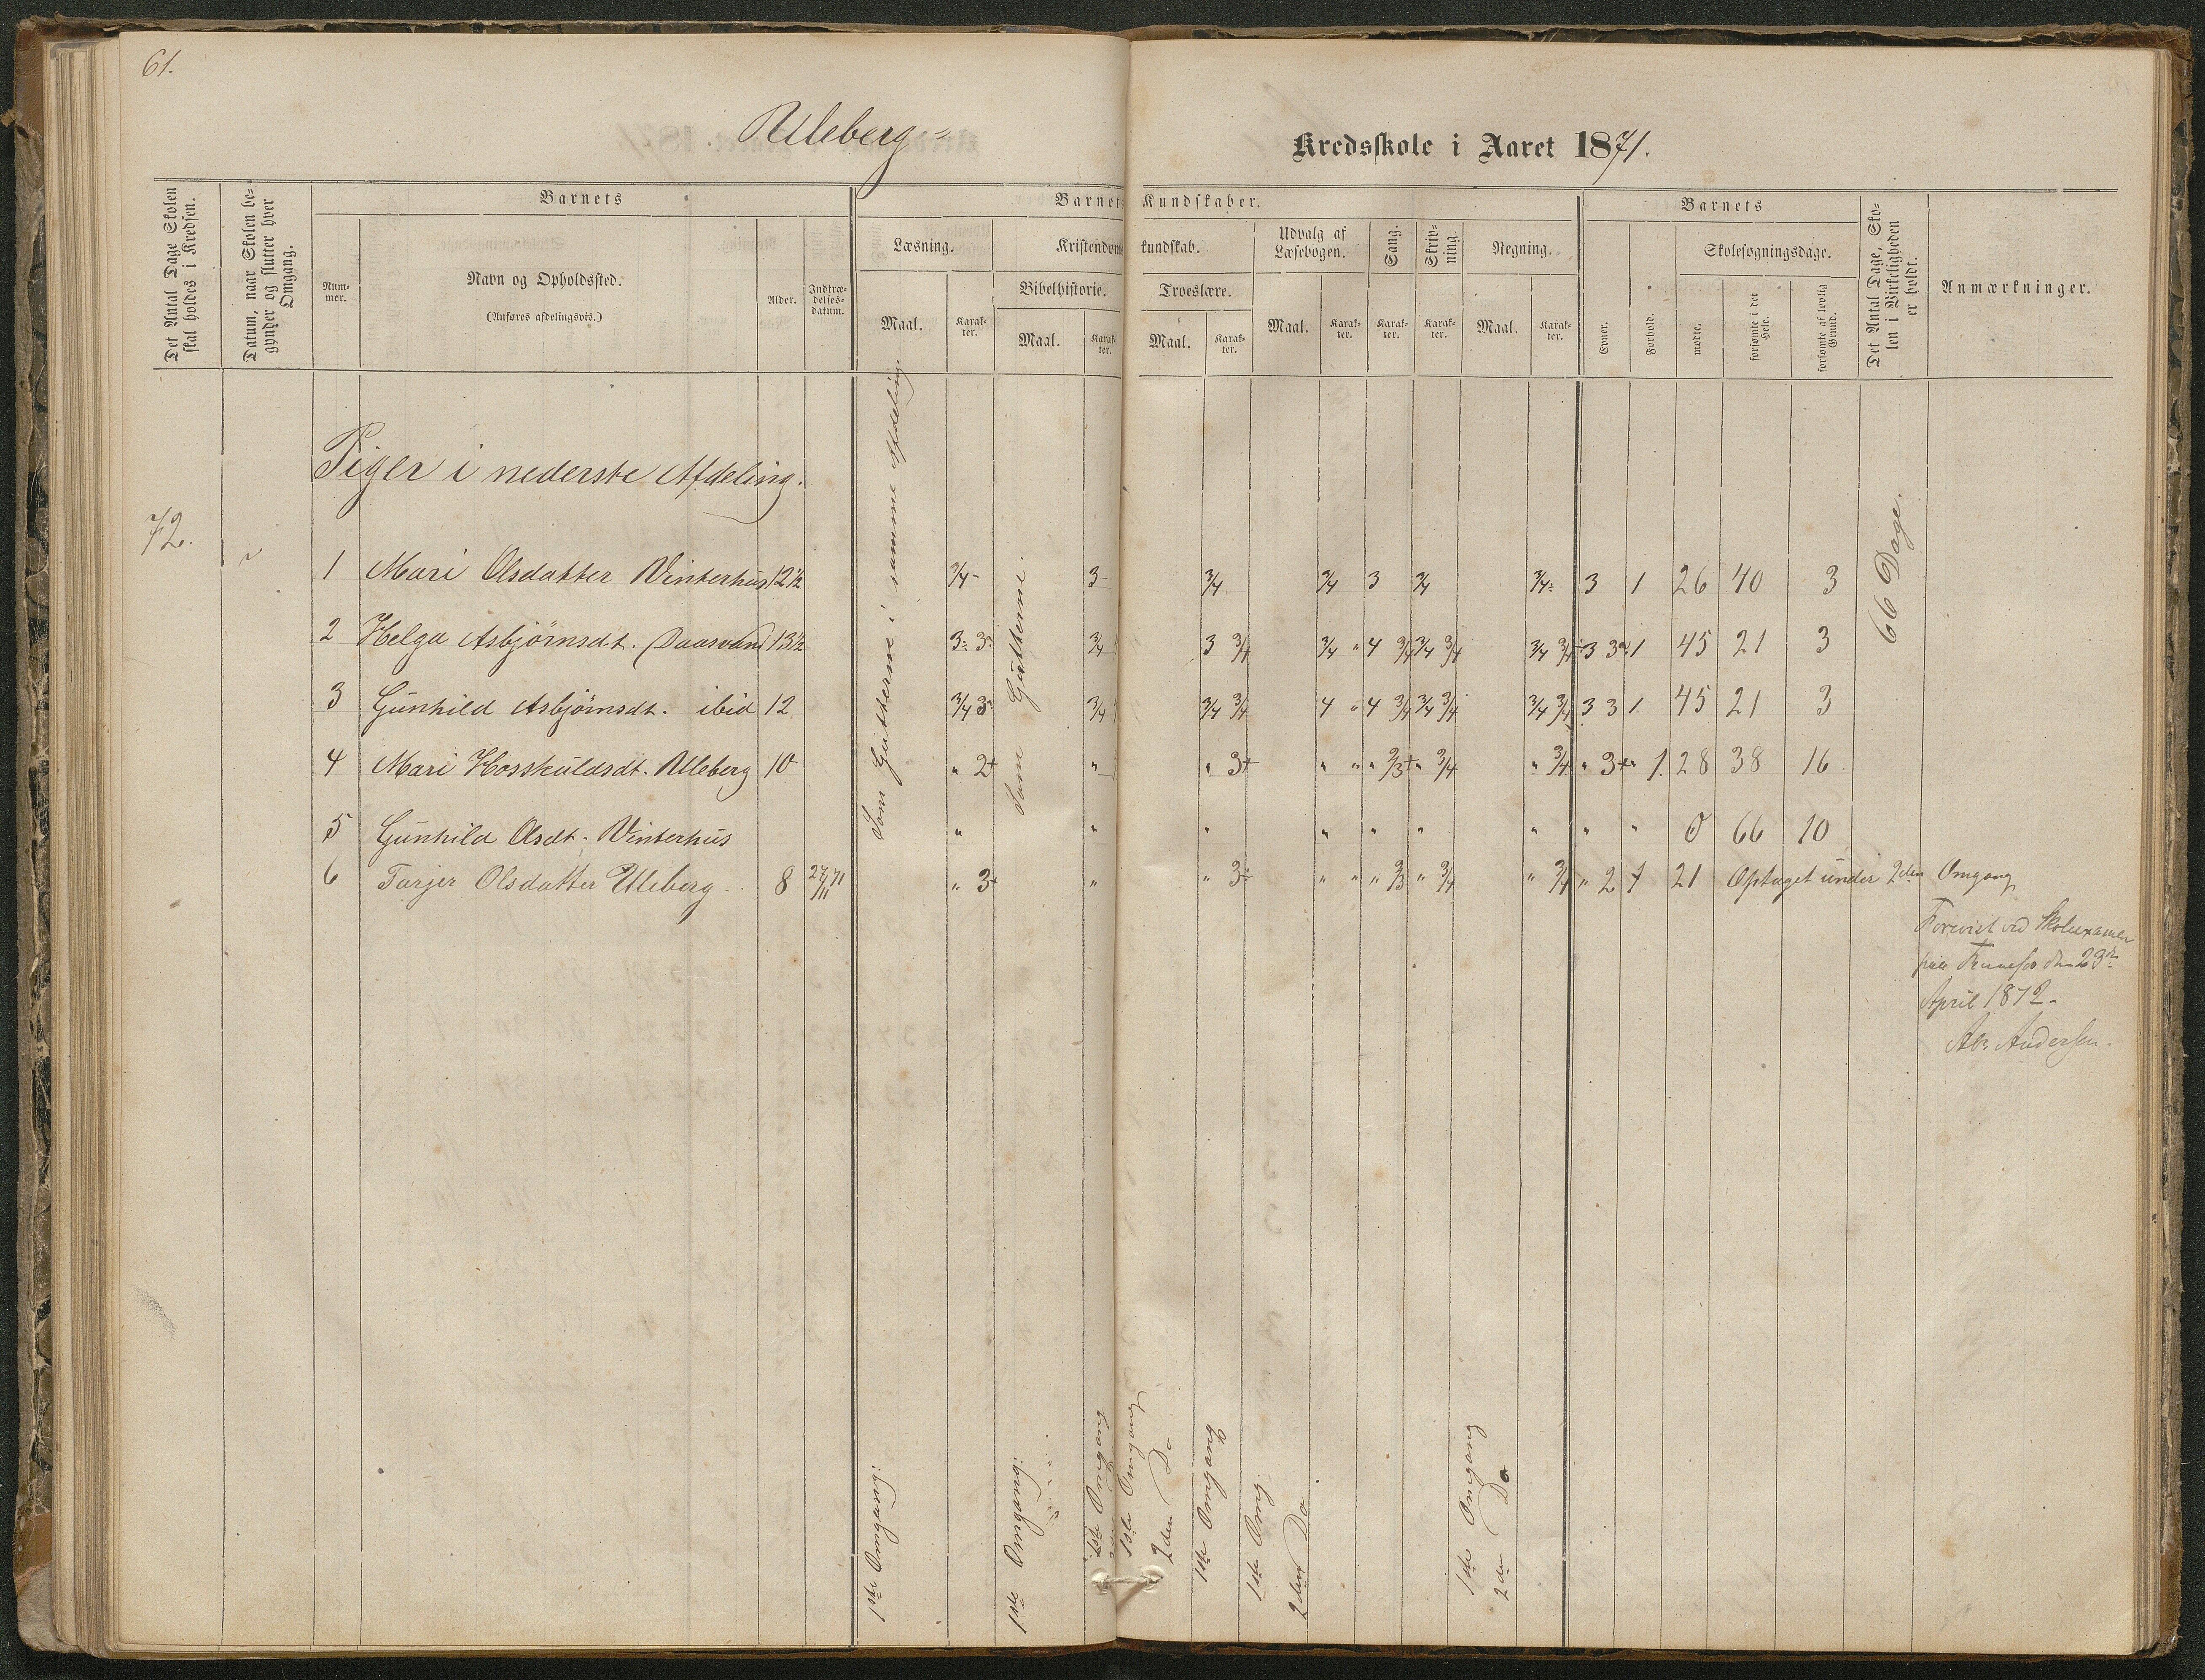 61.
Ulleberg=
Kredsskole i Aaret 1871.
Det Antal Dage Skolen skal holdes i Kredsen.
Datum, naar Skolen begynder og slutter hver Omgang.
Barnets
Nummer.
Navn og Opholdssted.
(Anføres afdelingsvis.)
Alder.
Indtrædelsesdatum.
Barnets Kundskaber.
Læsning.
Maal.
Karakter.
Kristendomskundskab.
Bibelhistorie.
Maal.
Karakter.
Troeslære.
Maal.
Karakter.
Udvalg af Læsebogen.
Maal.
Karakter.
Sang.
Karakter.
Skrivning.
Karakter.
Regning.
Maal.
Karakter.
Barnets
Evner.
Forhold.
Skolesøgningsdage.
mødte.
forsømte i det Hele.
forsømte af lovlig Grund.
Det Antal Dage, Skolen i Virkeligheden er holdt.
Anmærkninger.
Piger i nederste Afdeling.
72.
Som Gutterne i samme Afdeling.
Som Gutterne.
66 Dage.
1 Mari Olsdatter Vinterhus 12½ 3/4- 3- 3/4 3/4 3 3/4 3/4- 3 1 26 40 3
2 Helga Asbjørnsdt. Daasvand 13½ 3- 3 3/4 3 3/4 3/4 " 4 3/4 3/4 3/4 3/4 3/4 3 3 " 1 45 21 3
3 Gunhild Asbjørnsdt. ibid 12 3/4 3 3/4 3/4 3/4 4 " 4 3/4 3/4 3/4 3/4 3/4 3 3 1 45 21 3
4 Mari Hosskuldsdt. Ulleberg 10 " 2+ " " 3+ " " " 2/3+ " 3/4 " 3/4 " 3+ " 1. 28 38 16
5 Gunhild Olsdt. Vinterhus " " " " " " " " " 0 66 10
6 Tarjer Olsdatter Ulleberg 8 27/11 71 " 3+ " " 3+ " " " 2/3 " 3/4 " 3/4 " 2 1 21 Optaget under 2den Omgang
Forevist ved Skoleexamen
paa Fennefos den 23de
April 1872.
Abr. Andersen.
1ste Omgang:
1ste Omgang:
1ste Omgang
1ste Omgang
2den Do
1ste Omgang
1ste Omg.
2den Do
1ste Omgang
2den Do